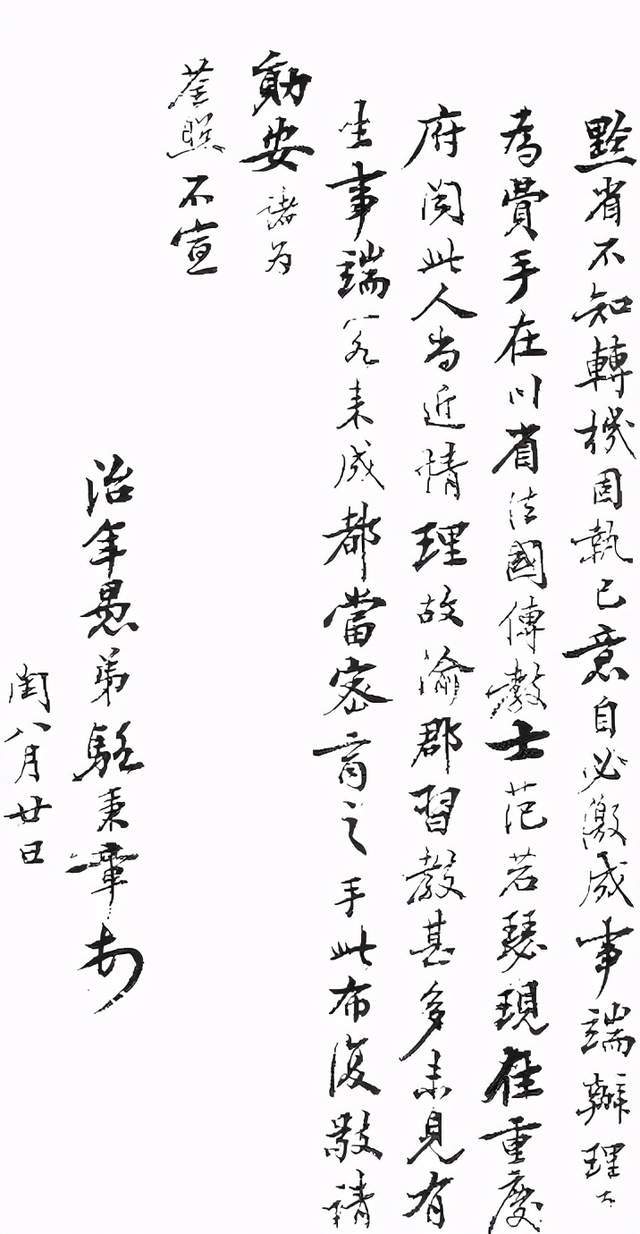 黔省不知轉機固執已意自必激成事端辦理大
為費手在川省法國傳教士范若瑟現在重慶
府聞此人尚近情理故渝郡習教甚多未見有
生事端若來成都當密商之手此布復敬請
勛安諸為
荃照不宣
治年愚弟駱秉章頓
閏八月廿日